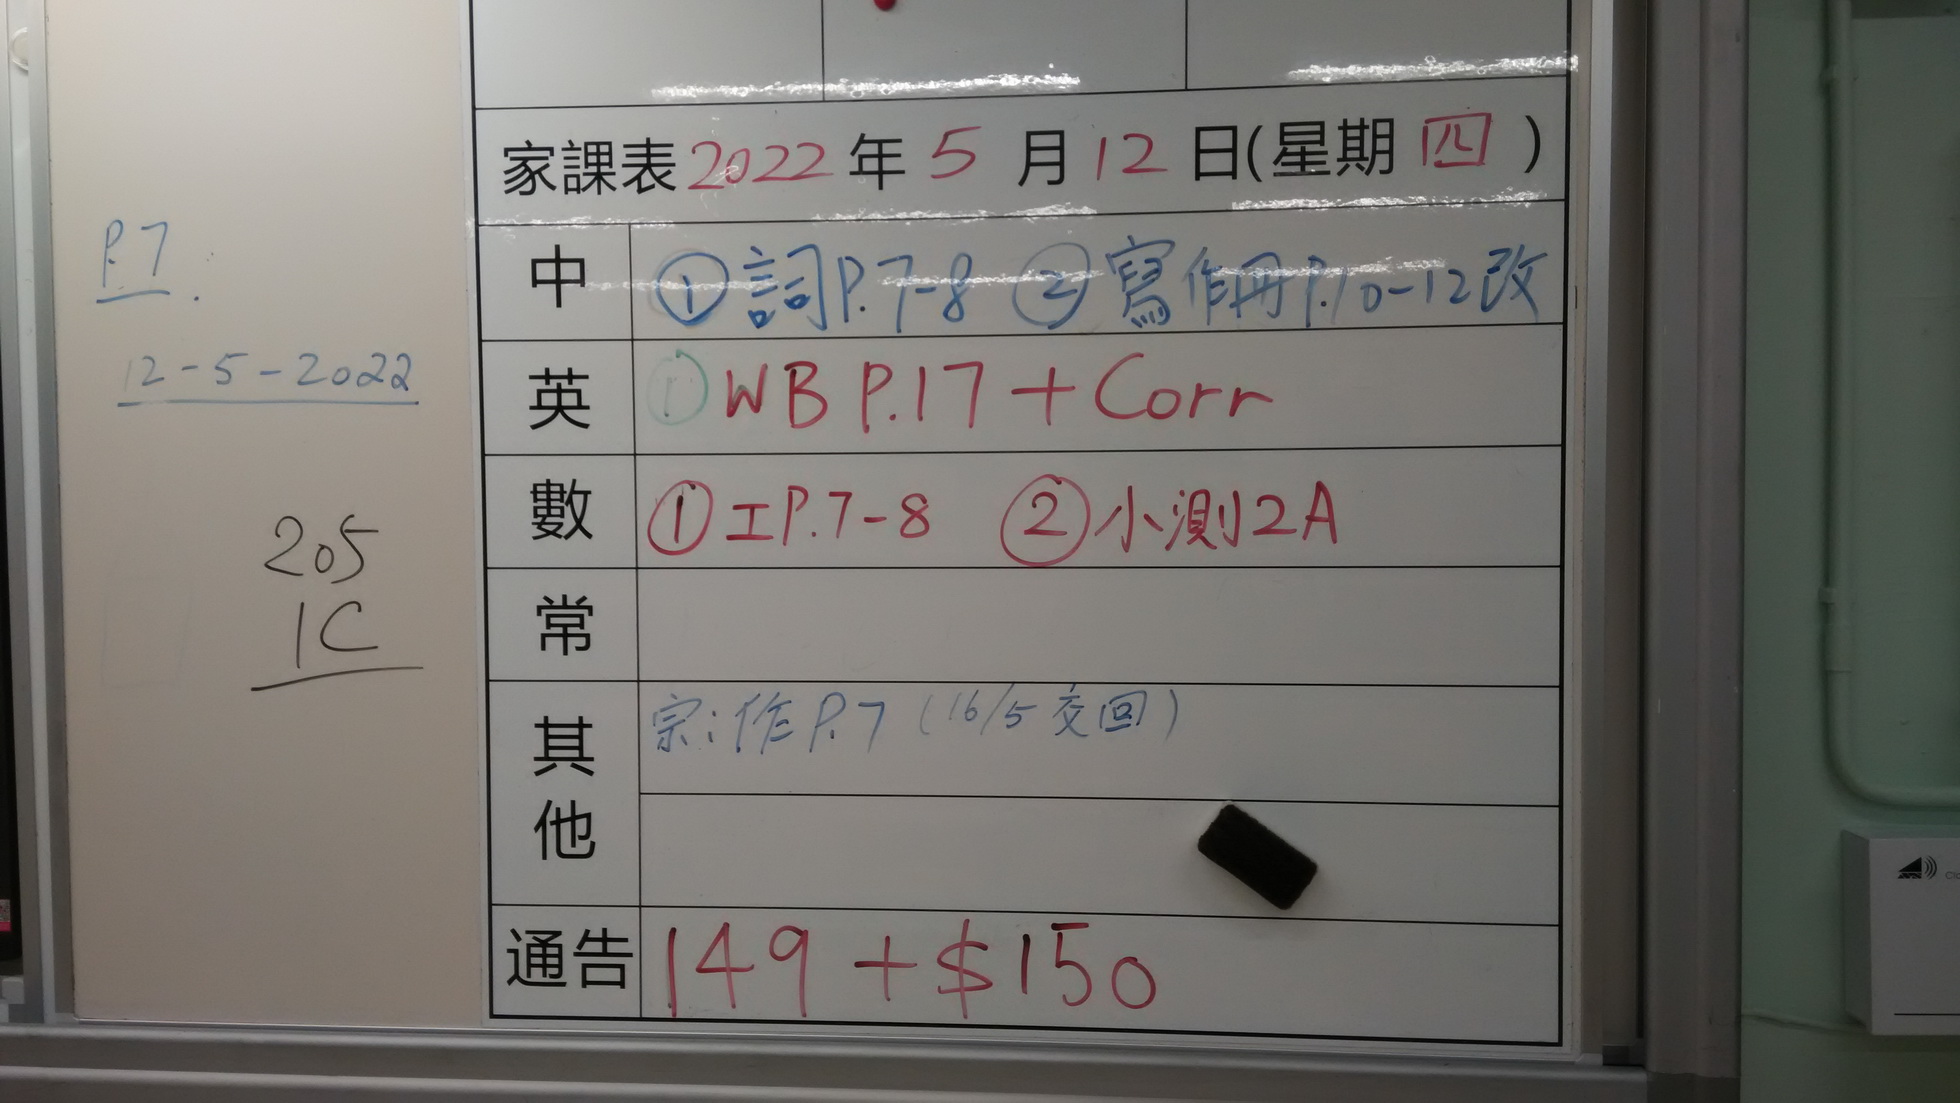 P.7
12-5-2022
205
1C
家課表 2022 年 5 月 12 日(星期 四 )
中 ① 詞 P.7-8 ② 寫作冊 P.10-12 改
英 ① WB P.17 + Corr
數 ① 工 P.7-8 ② 小測 2A
常
其他 宗：作 P.7 (16/5 交回)
通告 149 + $150